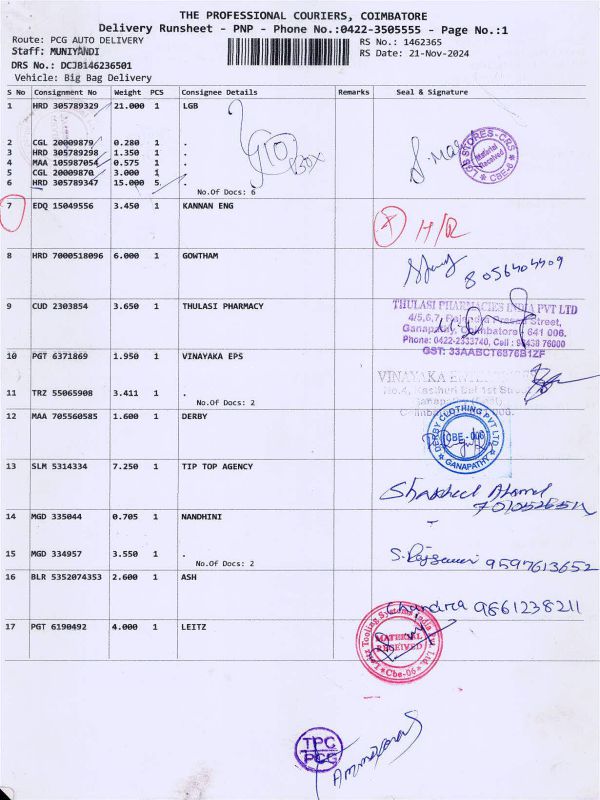 THE PROFESSIONAL COURIERS, COIMBATORE
Delivery Runsheet - PNP - Phone No.:0422-3505555 - Page No.:1
Route: PCG AUTO DELIVERY
RS No.: 1462365
Staff: MUNIYANDI
RS Date: 21-Nov-2024
DRS No.: DCJB146236501
Vehicle: Big Bag Delivery
S No Consignment No Weight PCS Consignee Details Remarks Seal & Signature
1 HRD 305789329 21.000 1 LGB
2 CGL 20009879 0.280 1 .
3 HRD 305789298 1.350 1 .
4 MAA 105987054 0.575 1 .
5 CGL 20009870 3.000 1 .
6 HRD 305789347 15.000 5 .
No.Of Docs: 6
LGB STORES-CRS
Material Received
CBE-6
7 EDQ 15049556 3.450 1 KANNAN ENG
8 HRD 7000518096 6.000 1 GOWTHAM
8056404409
9 CUD 2303854 3.650 1 THULASI PHARMACY
THULASI PHARMACIES INDIA PVT LTD
4/5,6,7, Rajendra Prasad Street,
Ganapathy, Coimbatore - 641 006.
Phone: 0422-2333740, Cell : 98438 76000
GST: 33AABCT6876B1ZF
10 PGT 6371869 1.950 1 VINAYAKA EPS
VINAYAKA
11 TRZ 55065908 3.411 1 .
No.Of Docs: 2
12 MAA 705560585 1.600 1 DERBY
DERBY CLOTHING PVT LTD
CBE - 006
GANAPATHY
13 SLM 5314334 7.250 1 TIP TOP AGENCY
14 MGD 335044 0.705 1 NANDHINI
15 MGD 334957 3.550 1 .
9597613652
No.Of Docs: 2
16 BLR 5352074353 2.600 1 ASH
Chandra 9861238211
17 PGT 6190492 4.000 1 LEITZ
Leitz Tooling Systems India Pvt. Ltd.
MATERIAL
RECEIVED
Cbe-06
TPC
PCG